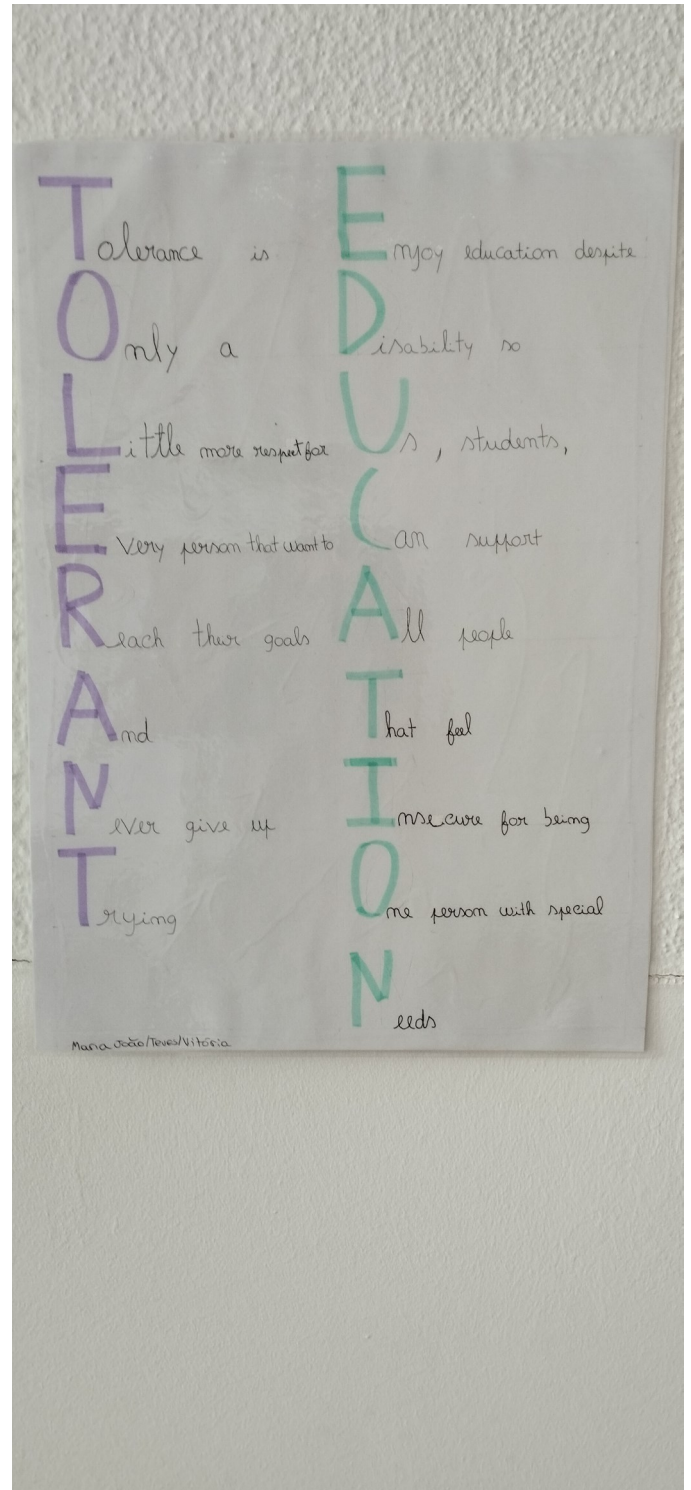 Tolerance is
Only a
Little more respect for
Every person that want to
Reach their goals
And
Never give up
Trying
Enjoy education despite
Disability so
Us, students,
Can support
All people
That feel
Insecure for being
One person with special
Needs
Maria João/Teves/Vitória